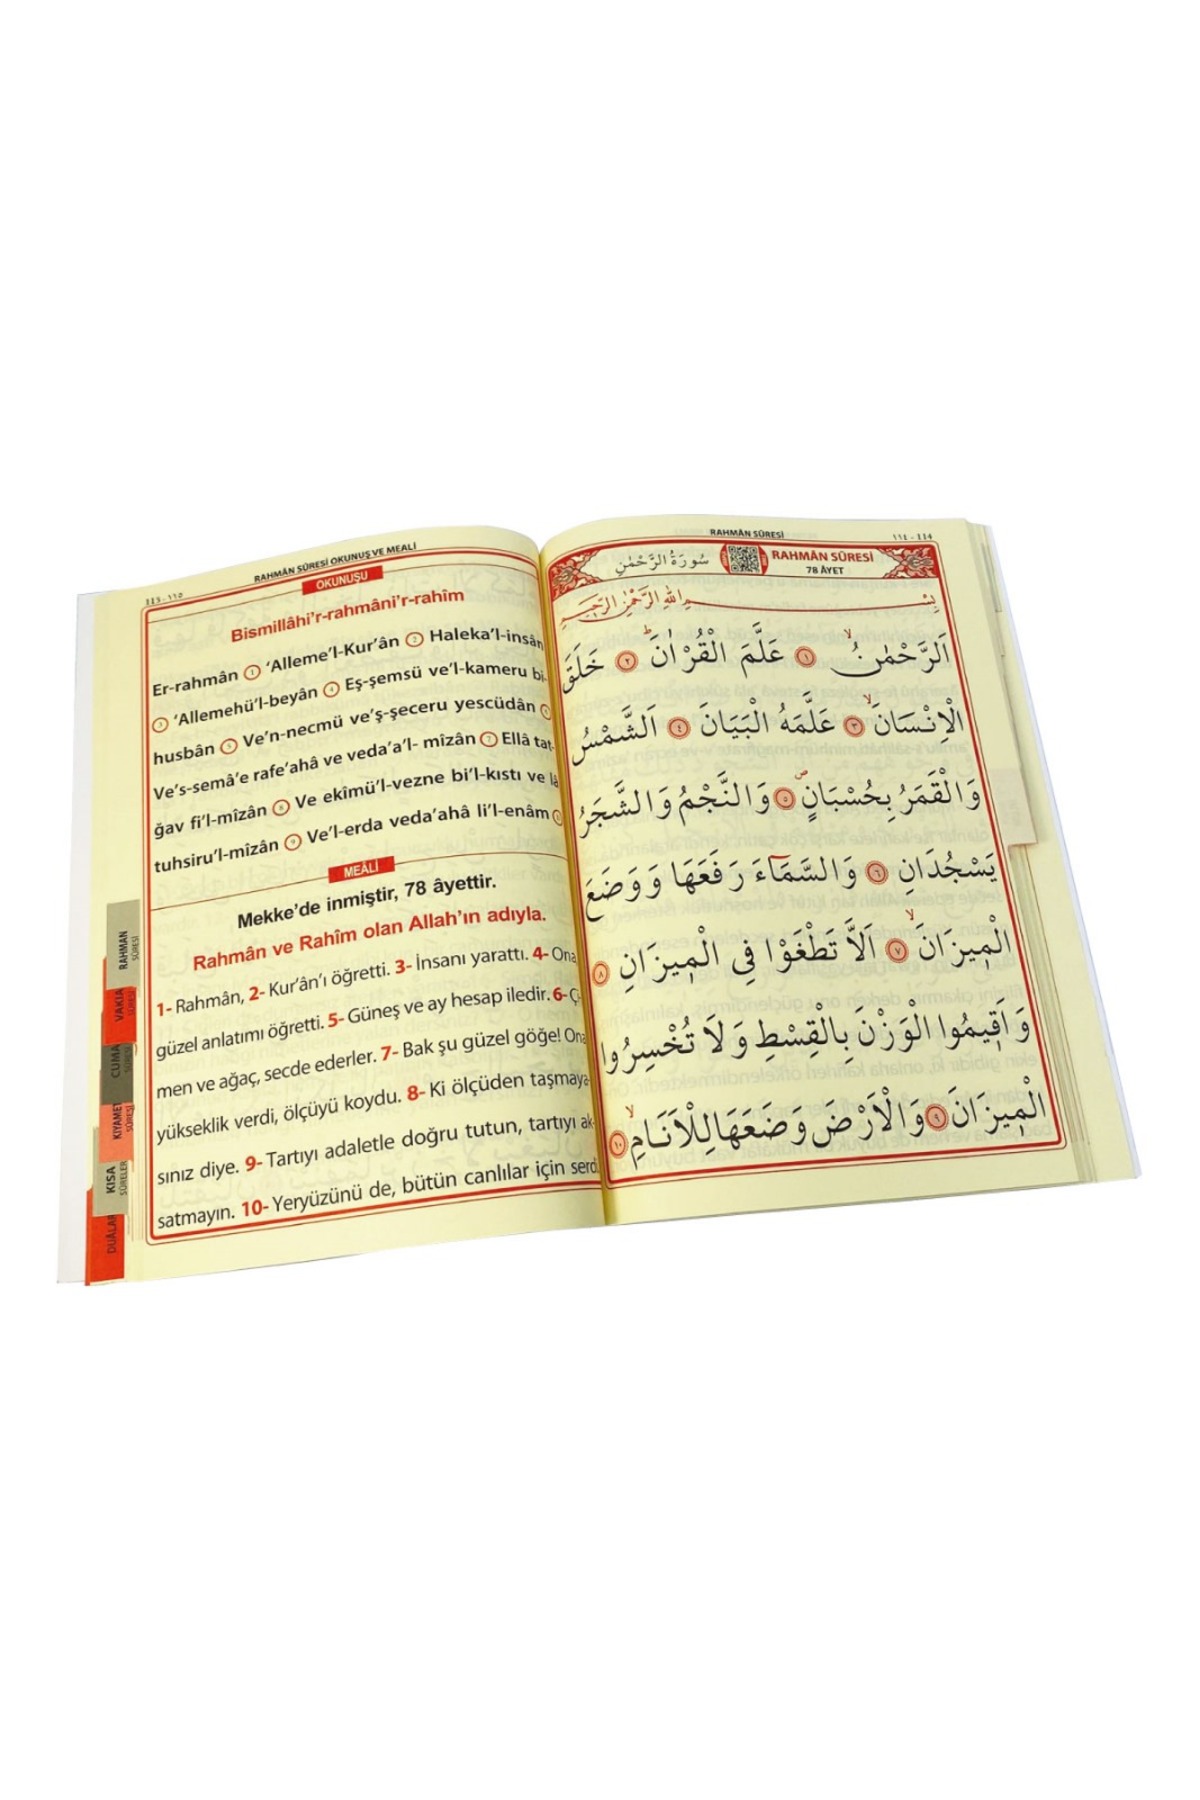 ٤٤٥ - ١١٥
RAHMÂN SÛRESİ OKUNUŞ VE MEALİ
OKUNUŞU
Bismillâhi'r-rahmâni'r-rahîm
Er-rahmân ① 'Alleme'l-Kur'ân ② Haleka'l-insân
③ 'Allemehü'l-beyân ④ Eş-şemsü ve'l-kameru bi-
husbân ⑤ Ve'n-necmü ve'ş-şeceru yescüdân ⑥
Ve's-semâ'e rafe'ahâ ve veda'a'l- mîzân ⑦ Ellâ tat-
ğav fi'l-mîzân ⑧ Ve ekîmü'l-vezne bi'l-kıstı ve lâ
tuhsiru'l-mîzân ⑨ Ve'l-erda veda'ahâ li'l-enâm
MEÂLİ
Mekke'de inmiştir, 78 âyettir.
Rahmân ve Rahîm olan Allah'ın adıyla.
1- Rahmân, 2- Kur'ân'ı öğretti. 3- İnsanı yarattı. 4- Ona
güzel anlatımı öğretti. 5- Güneş ve ay hesap iledir. 6- Çi-
men ve ağaç, secde ederler. 7- Bak şu güzel göğe! Ona
yükseklik verdi, ölçüyü koydu. 8- Ki ölçüden taşmaya-
sınız diye. 9- Tartıyı adaletle doğru tutun, tartıyı ak-
satmayın. 10- Yeryüzünü de, bütün canlılar için serdi.
RAHMAN
SÛRESİ
VAKIA
SÛRESİ
CUMA
SÛRESİ
KIYAMET
SÛRESİ
KISA
SÛRELER
DUÂLAR
RAHMÂN SÛRESİ
١١٤ - 114
سُورَةُ الرَّحْمٰنِ
RAHMÂN SÛRESİ
78 ÂYET
بِسْمِ اللهِ الرَّحْمٰنِ الرَّحِيمِ
اَلرَّحْمٰنُۙ ١ عَلَّمَ الْقُرْاٰنَۜ ٢ خَلَقَ
الْاِنْسَانَۙ ٣ عَلَّمَهُ الْبَيَانَ ٤ اَلشَّمْسُ
وَالْقَمَرُ بِحُسْبَانٍۖ ٥ وَالنَّجْمُ وَالشَّجَرُ
يَسْجُدَانِ ٦ وَالسَّمَٓاءَ رَفَعَهَا وَوَضَعَ
الْم۪يزَانَۙ ٧ اَلَّا تَطْغَوْا فِي الْم۪يزَانِ ٨
وَاَق۪يمُوا الْوَزْنَ بِالْقِسْطِ وَلَا تُخْسِرُوا
الْم۪يزَانَ ٩ وَالْاَرْضَ وَضَعَهَا لِلْاَنَامِۙ ١٠